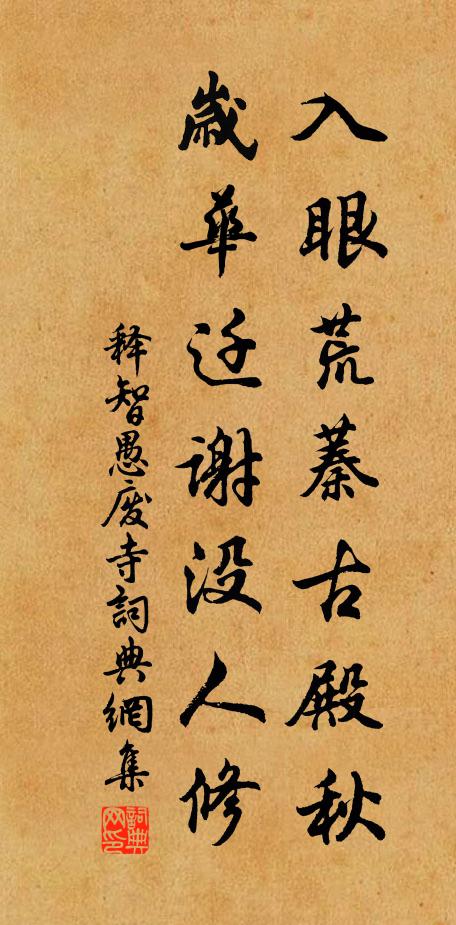 入眼荒蓁古殿秋
歲華迁謝没人修
释智愚废寺詞典網集
詞典网印